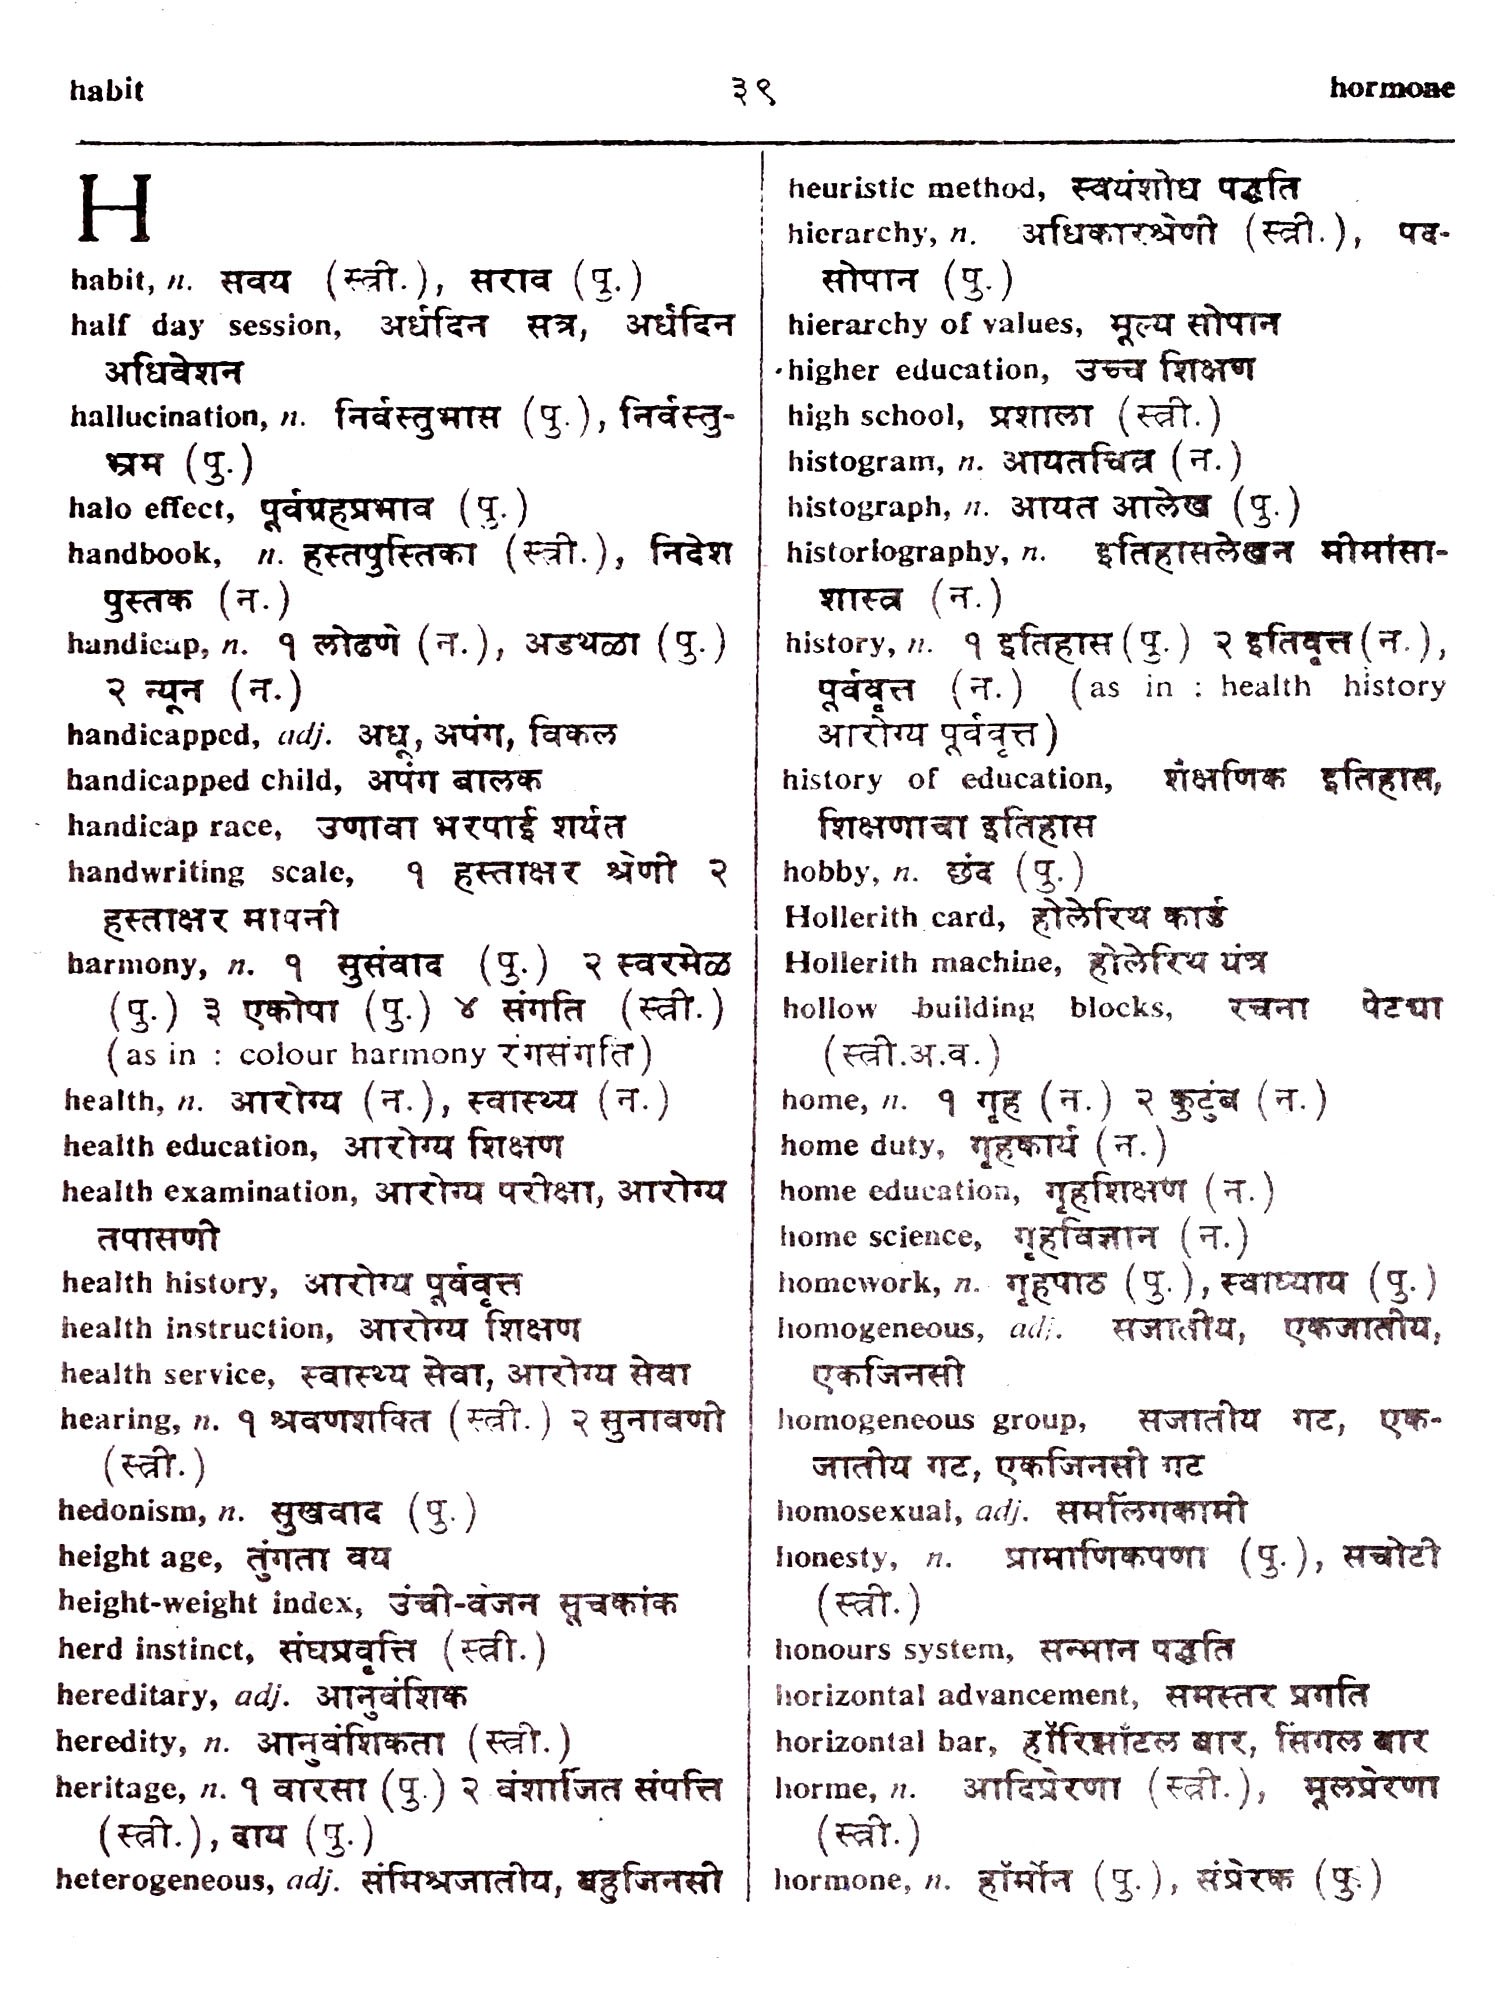 habit ३९ hormone
H
habit, n. सवय (स्त्री.), सराव (पु.)
half day session, अर्धदिन सत्र, अर्धदिन
अधिवेशन
hallucination, n. निर्वस्तुभास (पु.), निर्वस्तु-
भ्रम (पु.)
halo effect, पूर्वग्रहप्रभाव (पु.)
handbook, n. हस्तपुस्तिका (स्त्री.), निदेश
पुस्तक (न.)
handicap, n. १ लोढणे (न.), अडथळा (पु.)
२ न्यून (न.)
handicapped, adj. अधू, अपंग, विकल
handicapped child, अपंग बालक
handicap race, उणावा भरपाई शर्यत
handwriting scale, १ हस्ताक्षर श्रेणी २
हस्ताक्षर मापनी
harmony, n. १ सुसंवाद (पु.) २ स्वरमेळ
(पु.) ३ एकोपा (पु.) ४ संगति (स्त्री.)
(as in : colour harmony रंगसंगति)
health, n. आरोग्य (न.), स्वास्थ्य (न.)
health education, आरोग्य शिक्षण
health examination, आरोग्य परीक्षा, आरोग्य
तपासणी
health history, आरोग्य पूर्ववृत्त
health instruction, आरोग्य शिक्षण
health service, स्वास्थ्य सेवा, आरोग्य सेवा
hearing, n. १ श्रवणशक्ति (स्त्री.) २ सुनावणी
(स्त्री.)
hedonism, n. सुखवाद (पु.)
height age, तुंगता वय
height-weight index, उंची-वजन सूचकांक
herd instinct, संघप्रवृत्ति (स्त्री.)
hereditary, adj. आनुवंशिक
heredity, n. आनुवंशिकता (स्त्री.)
heritage, n. १ वारसा (पु.) २ वंशार्जित संपत्ति
(स्त्री.), दाय (पु.)
heterogeneous, adj. संमिश्रजातीय, बहुजिनसी
heuristic method, स्वयंशोध पद्धति
hierarchy, n. अधिकारश्रेणी (स्त्री.), पद-
सोपान (पु.)
hierarchy of values, मूल्य सोपान
higher education, उच्च शिक्षण
high school, प्रशाला (स्त्री.)
histogram, n. आयतचित्र (न.)
histograph, n. आयत आलेख (पु.)
historiography, n. इतिहासलेखन मीमांसा-
शास्त्र (न.)
history, n. १ इतिहास (पु.) २ इतिवृत्त (न.),
पूर्ववृत्त (न.) (as in : health history
आरोग्य पूर्ववृत्त)
history of education, शैक्षणिक इतिहास,
शिक्षणाचा इतिहास
hobby, n. छंद (पु.)
Hollerith card, होलेरिथ कार्ड
Hollerith machine, होलेरिथ यंत्र
hollow building blocks, रचना पेटया
(स्त्री.अ.व.)
home, n. १ गृह (न.) २ कुटुंब (न.)
home duty, गृहकार्य (न.)
home education, गृहशिक्षण (न.)
home science, गृहविज्ञान (न.)
homework, n. गृहपाठ (पु.), स्वाध्याय (पु.)
homogeneous, adj. सजातीय, एकजातीय,
एकजिनसी
homogeneous group, सजातीय गट, एक-
जातीय गट, एकजिनसी गट
homosexual, adj. समलिंगकामी
honesty, n. प्रामाणिकपणा (पु.), सचोटी
(स्त्री.)
honours system, सन्मान पद्धति
horizontal advancement, समस्तर प्रगति
horizontal bar, हॉरिझाँटल बार, सिंगल बार
horme, n. आदिप्रेरणा (स्त्री.), मूलप्रेरणा
(स्त्री.)
hormone, n. हॉर्मोन (पु.), संप्रेरक (पु.)